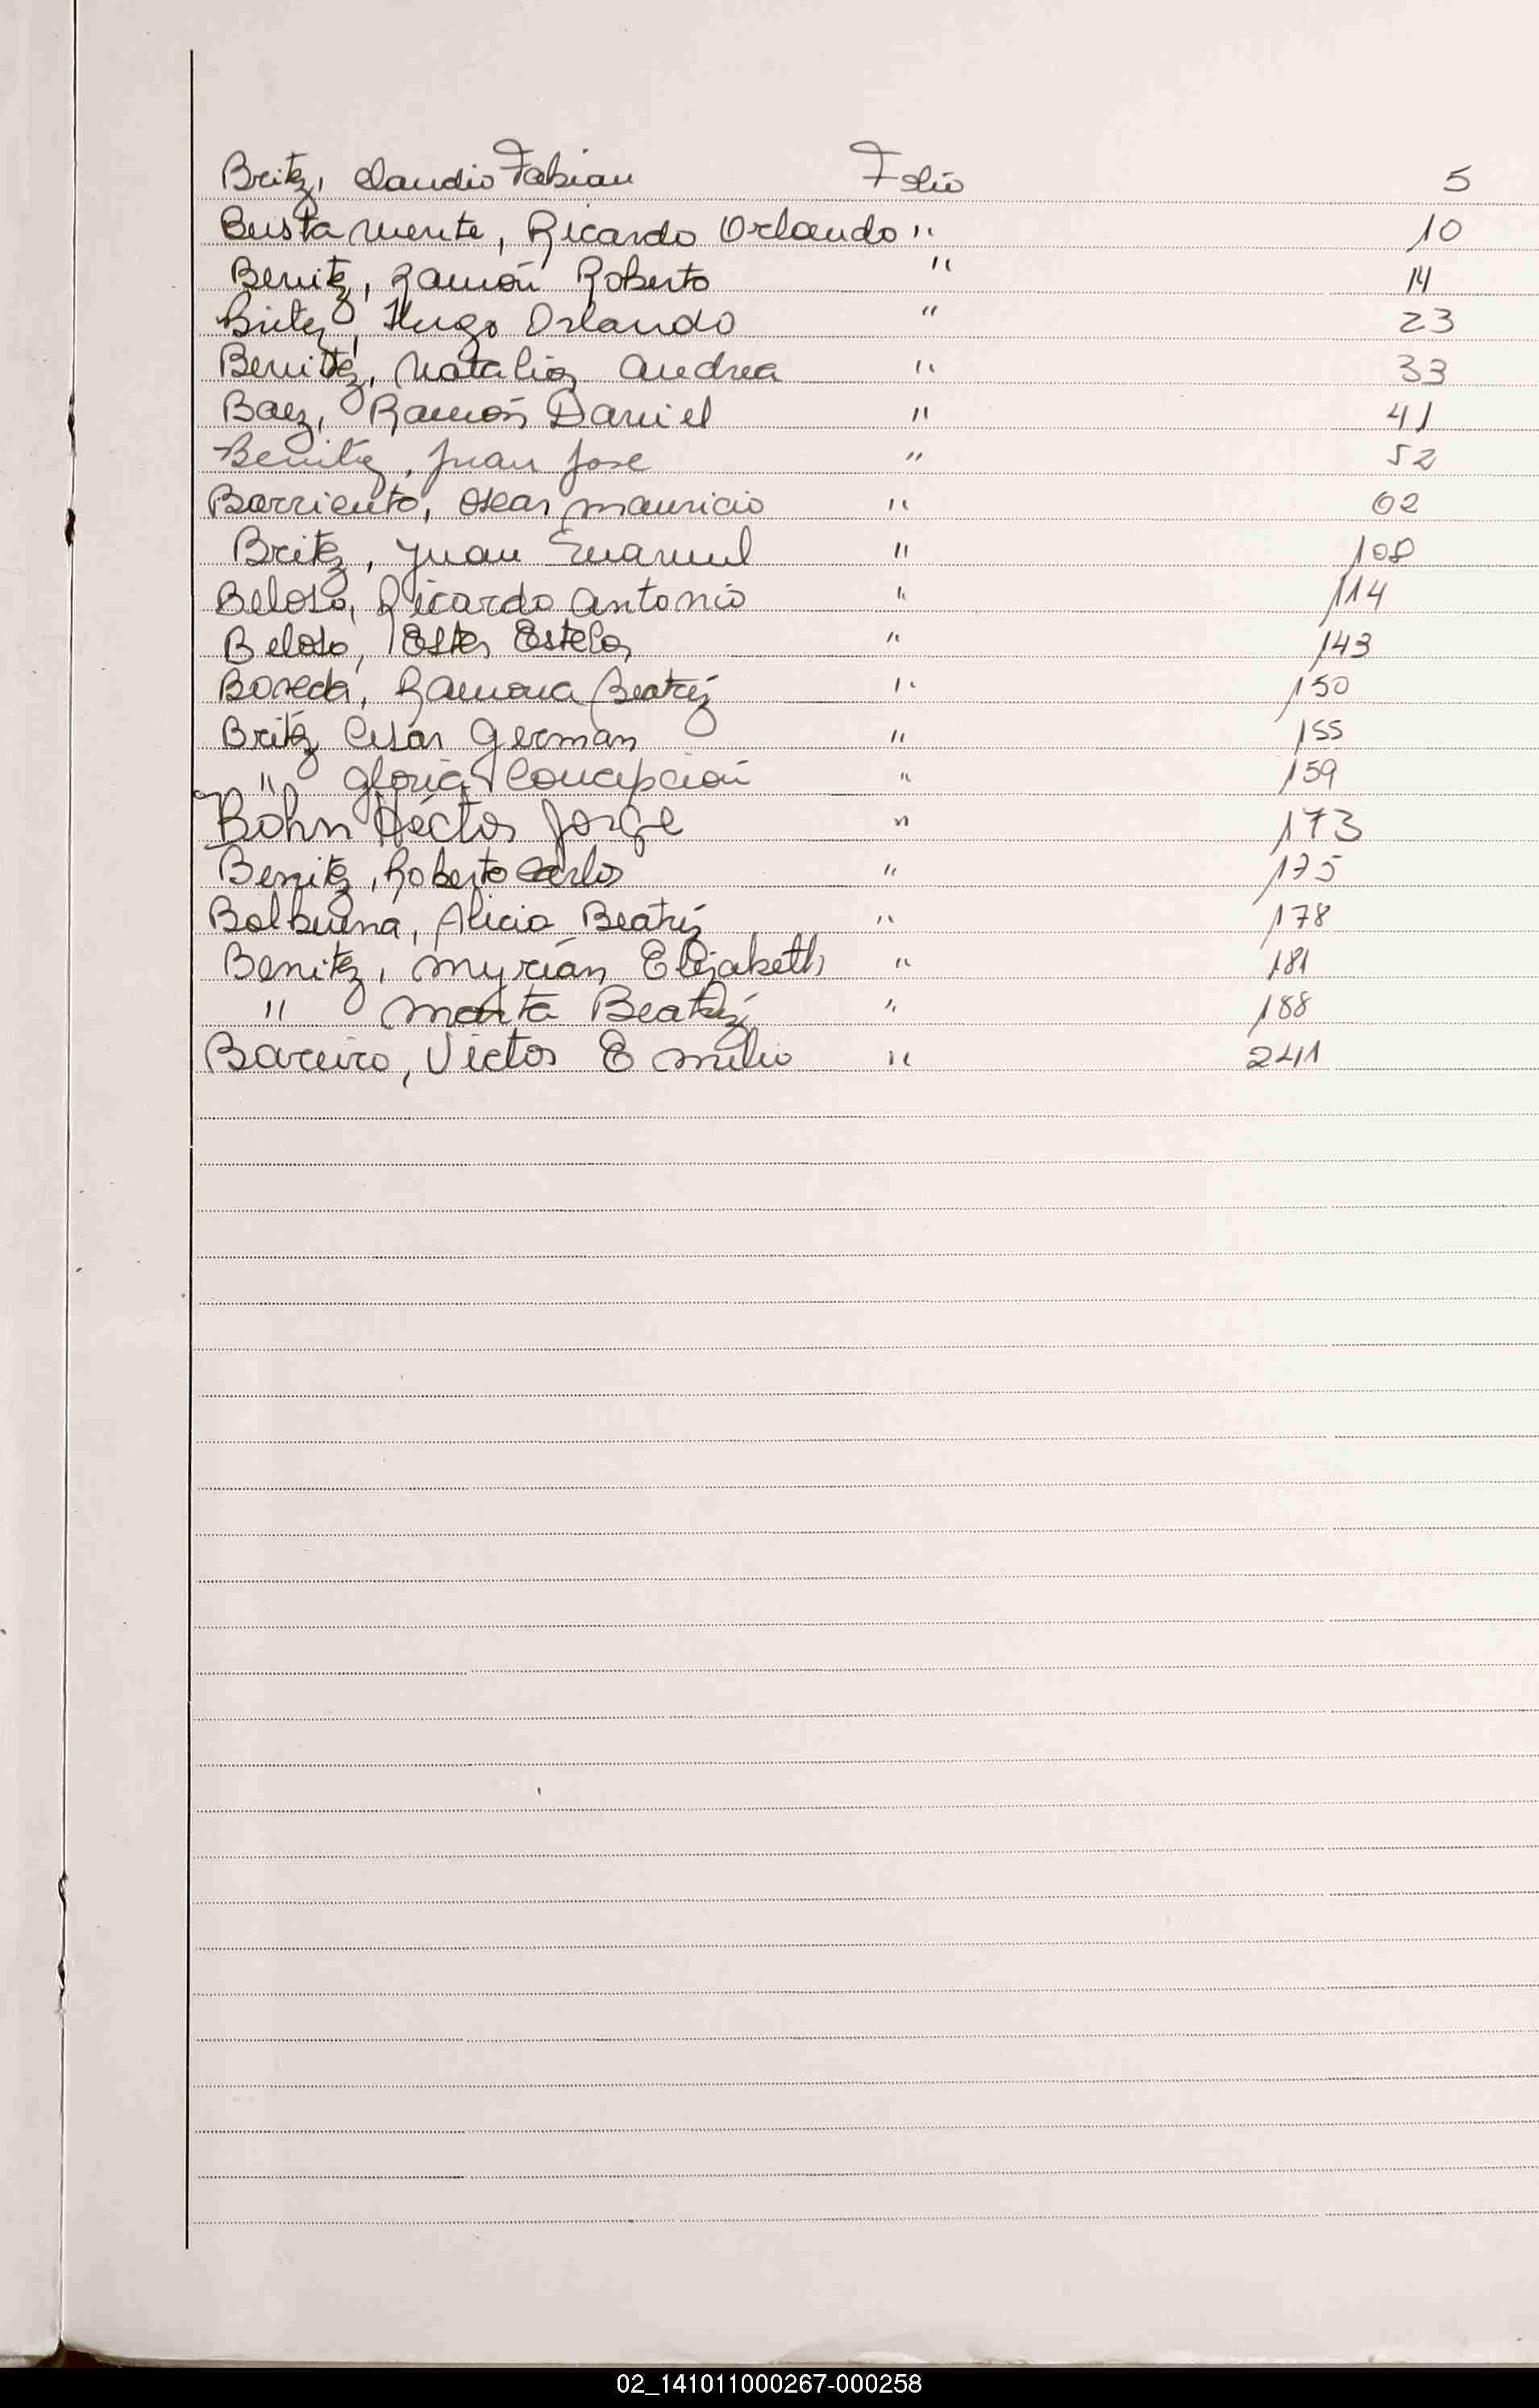 Britez, Claudio Fabian Folio 5
Bustamente, Ricardo Orlando " 10
Benitez, Ramón Roberto " 14
Britez, Hugo Orlando " 23
Benitez, Natalia Andrea " 33
Baez, Ramón Daniel " 41
Benitez, Juan Jose " 52
Barriento, Oscar Mauricio " 62
Britez, Juan Emanuel " 108
Beloso, Ricardo Antonio " 114
Beloso, Ester Estela " 143
Boveda, Ramona Beatriz " 150
Britez Cesár German " 155
" Gloria Concepción " 159
Bohn Héctor Jorge " 173
Benitez, Roberto Carlos " 175
Balbuena, Alicia Beatriz " 178
Benitez, Myrián Elizabeth " 181
" Marta Beatriz " 188
Bareiro, Victor Emilio " 241
02_141011000267-000258